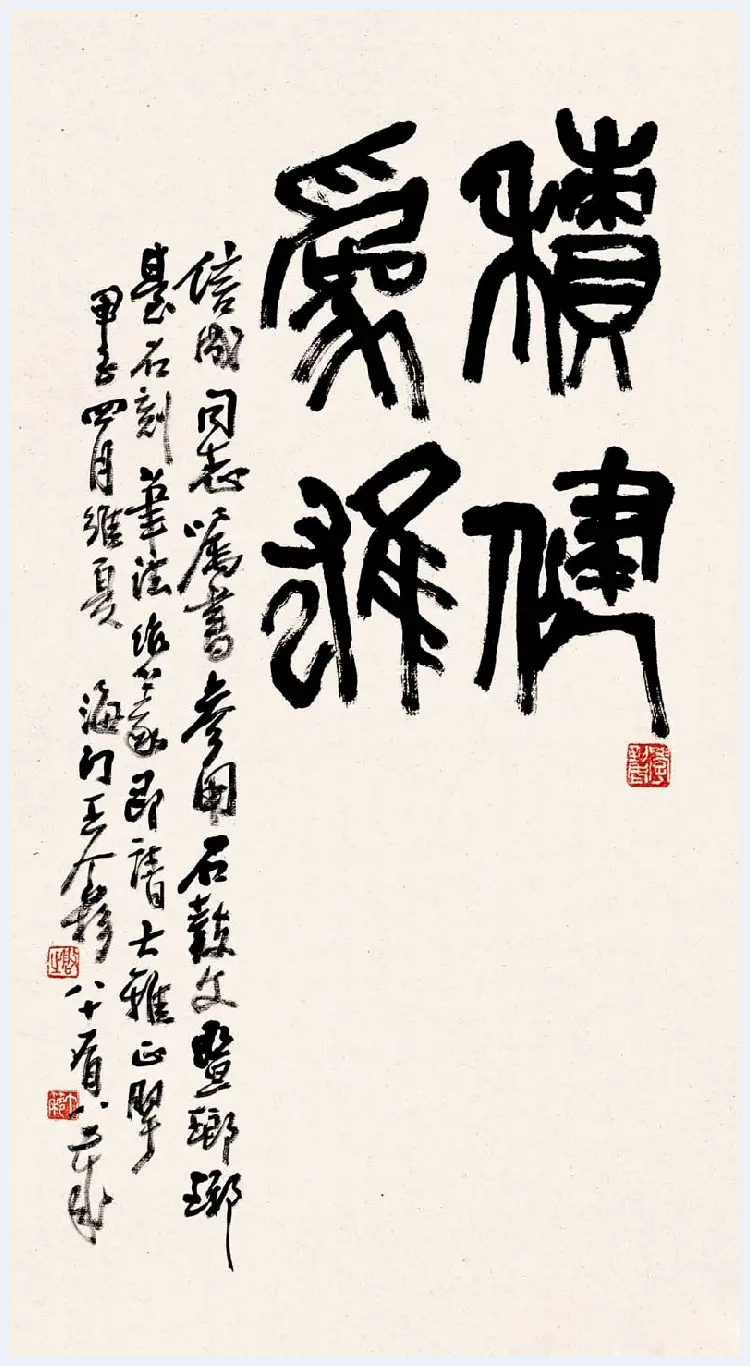 積健
為雄
成同志囑書參用石鼓文暨瑯琊
臺石刻筆法作篆即請大雅正
甲子四月維夏 海門王个簃八十有八歲